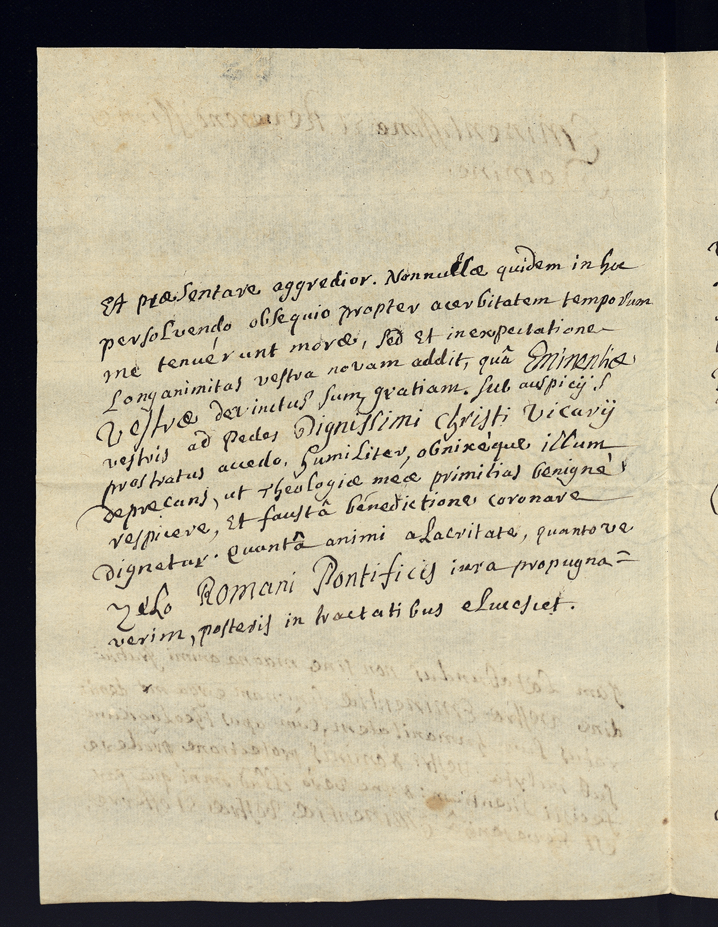 Et præsentare aggredior. Nonnullæ quidem in hoc
persolvendo obsequio propter acerbitatem temporum
me tenuérunt moræ, sed et inexpectatione
Longanimitas vestra novam addit, quâ Eminentiæ
Vestræ devinctus sum, gratiam. sub auspicijs
vestris ad pedes Dignissimi Christi Vicarij
prostratus accedo, humiliter, obnixéque illum
deprecans, ut Theologiæ meæ primitias benignè
respicere, Et faustâ benedictione coronare
Dignetur. Quantâ animi alacritate, quantove
Zelo Romani Pontificis iura propugna=
verim, posteris in tractatibus elucescet.